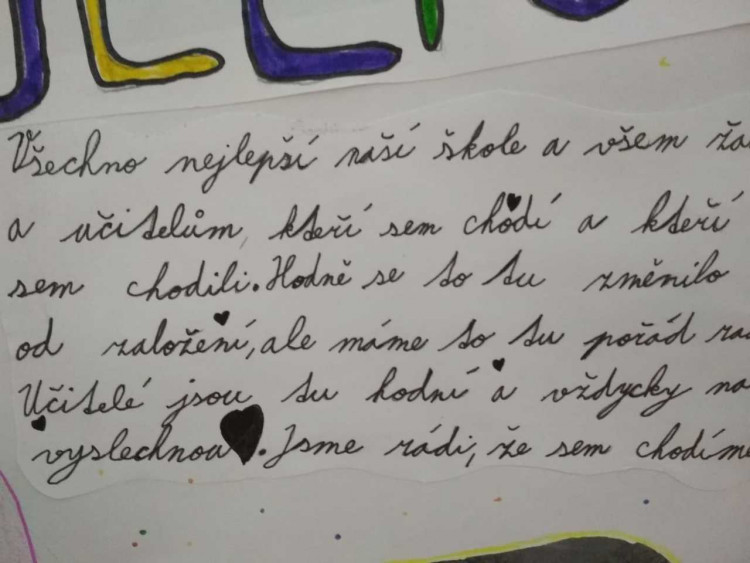 Všechno nejlepší naší škole a všem
a učitelům, kteří sem chodí a kteří
sem chodili. Hodně se to tu změnilo
od založení, ale máme to tu pořád
Učitelé jsou tu hodní a vždycky
vyslechnou. Jsme rádi, že sem chodíme